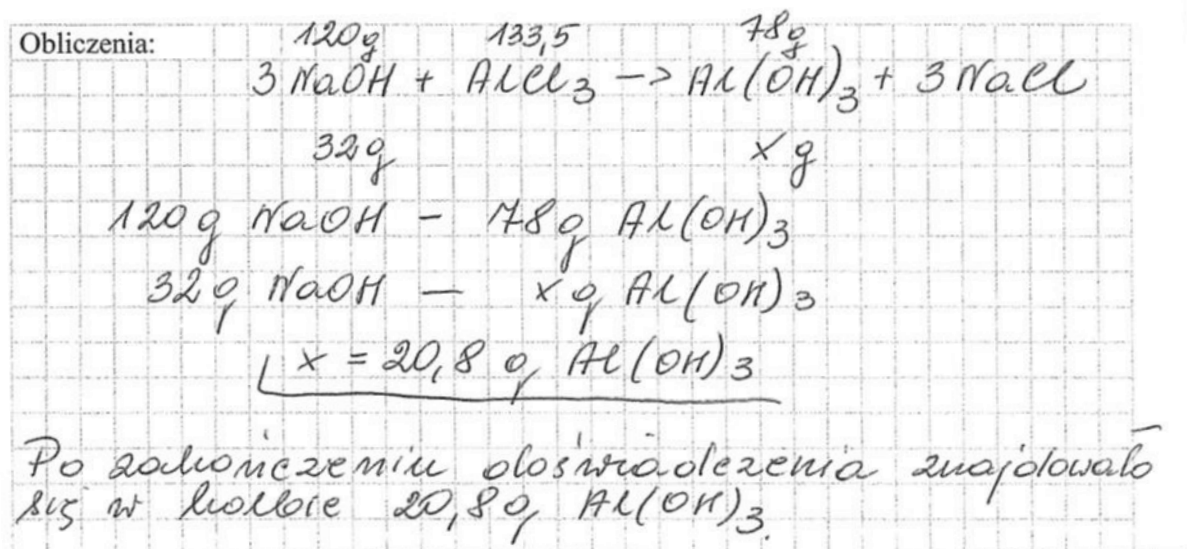 Obliczenia:
120g 133,5 78g
3 NaOH + AlCl3 -> Al(OH)3 + 3 NaCl
32g x g
120 g NaOH - 78g Al(OH)3
32g NaOH — x g Al(OH)3
x = 20,8 g Al(OH)3
Po zakończeniu doświadczenia znajdowało
się w kolbie 20,8 g Al(OH)3.